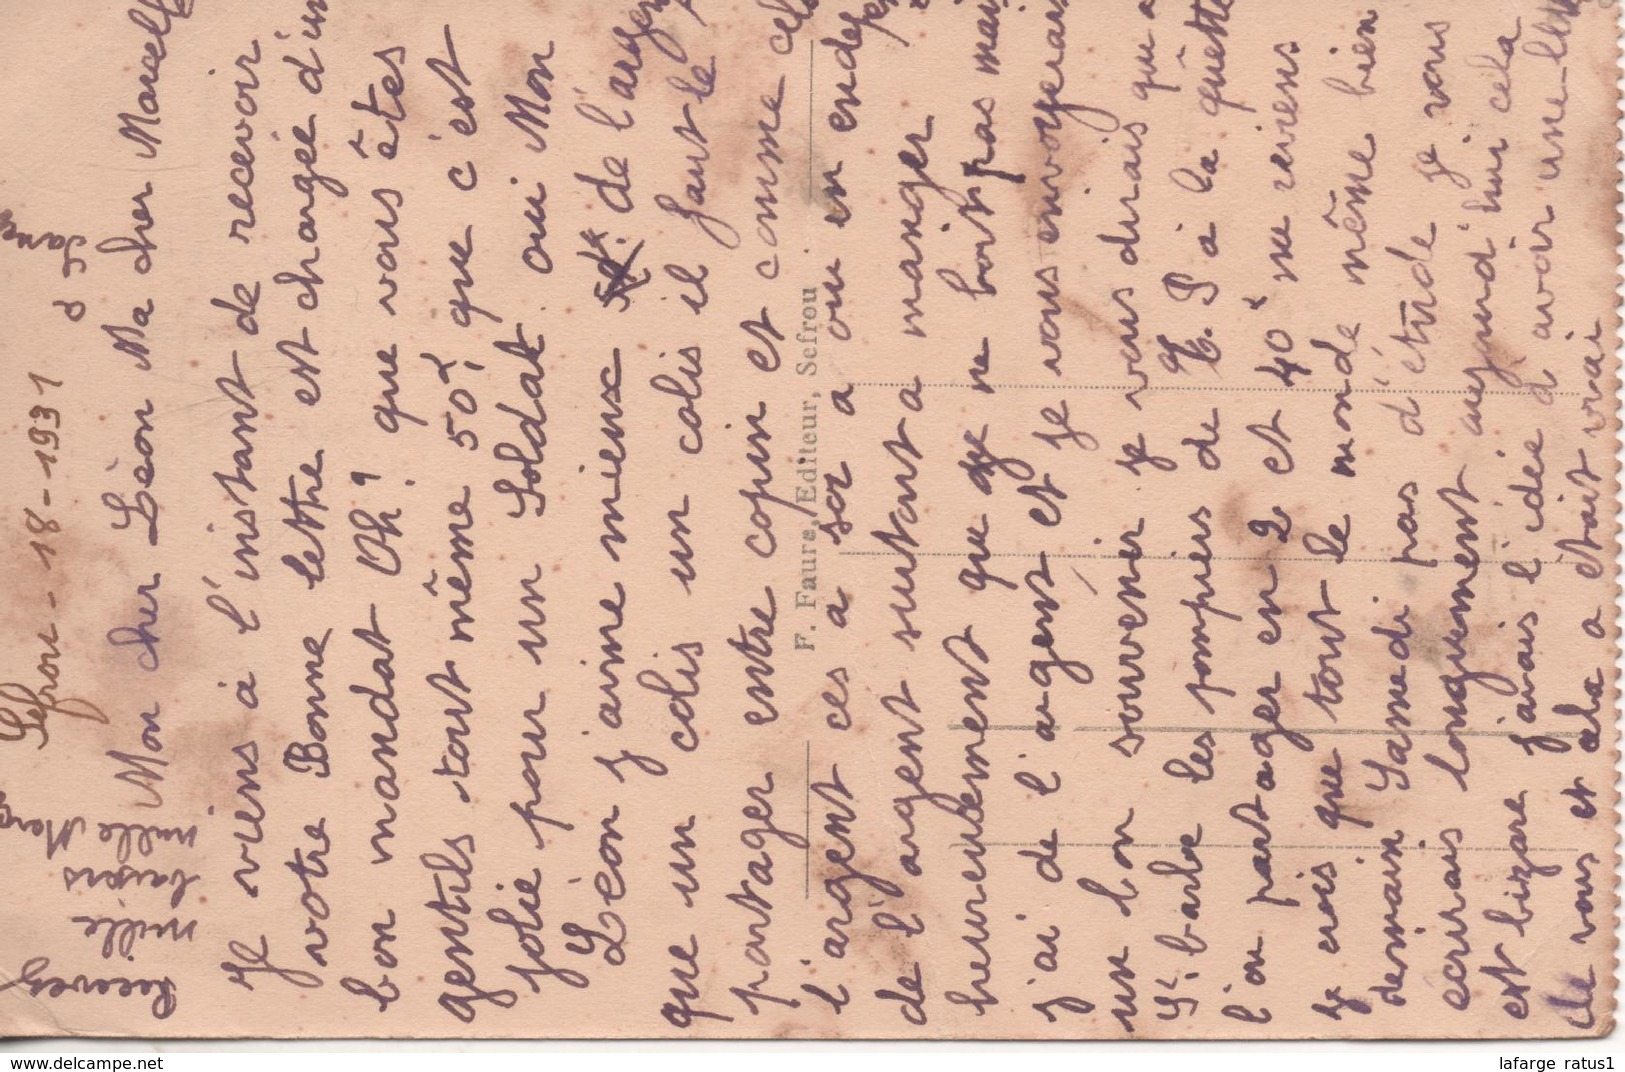 Sefrou - 18-1931
Mon cher Léon Ma cher Marcelle
Je viens à l'instant de recevoir
votre Bonne lettre est chargée d'un
bon mandat Oh! que vous êtes
gentils tout même 50f, que c'est
jolie pour un Soldat oui Mon
Léon j'aime mieux de l'argent
que un colis un colis il faut le
partager entre copin et comme cela
l'argent ces a soi a ou en
de l'argent surtout a manger
heureusement que je ne boit pas mais
j'ai de l'argent et je vous envoyerais
un bon souvenir je vous durais que a
St. barbe les pompiers de T. P à la quêtte
l'on partager en 2 et 40f me reviens
je crois que tout le monde même bien
demain Samedi pas d'étude je vous
ecrirais longuement aujourd'hui cela
est bizare j'avais l'idée d'avoir une lettre
de vous et cela a était vrai
Recevez
mille
baisers
mille
F. Faure, Editeur, Sefrou
lafarge ratus1